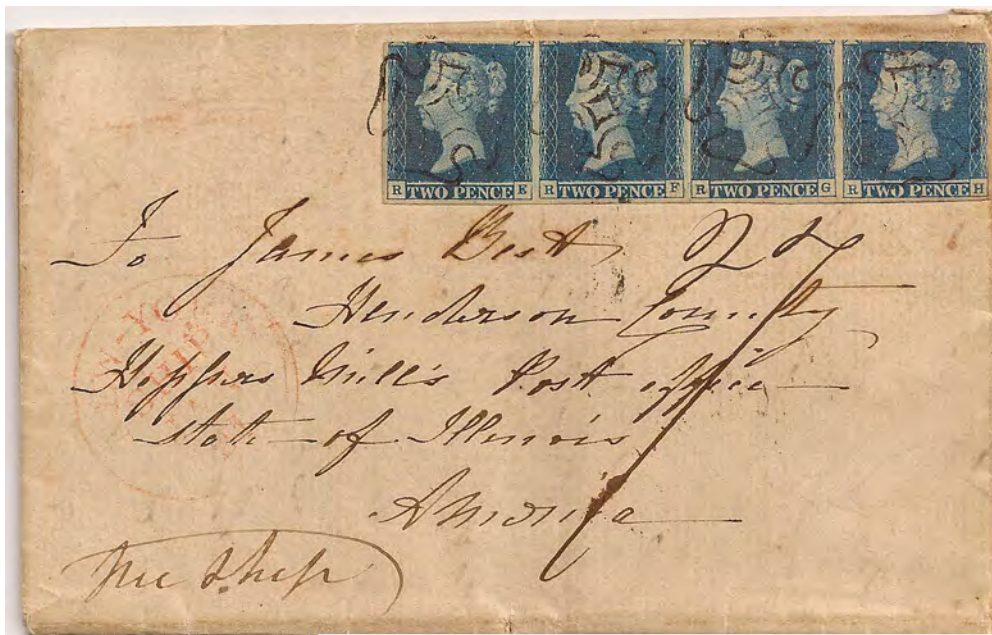 R TWO PENCE E R TWO PENCE F R TWO PENCE G R TWO PENCE H
To James Best
Henderson County
Hoppers Mill's Post office
State of Illinois
America
NEW-YORK
SHIP
pr ship